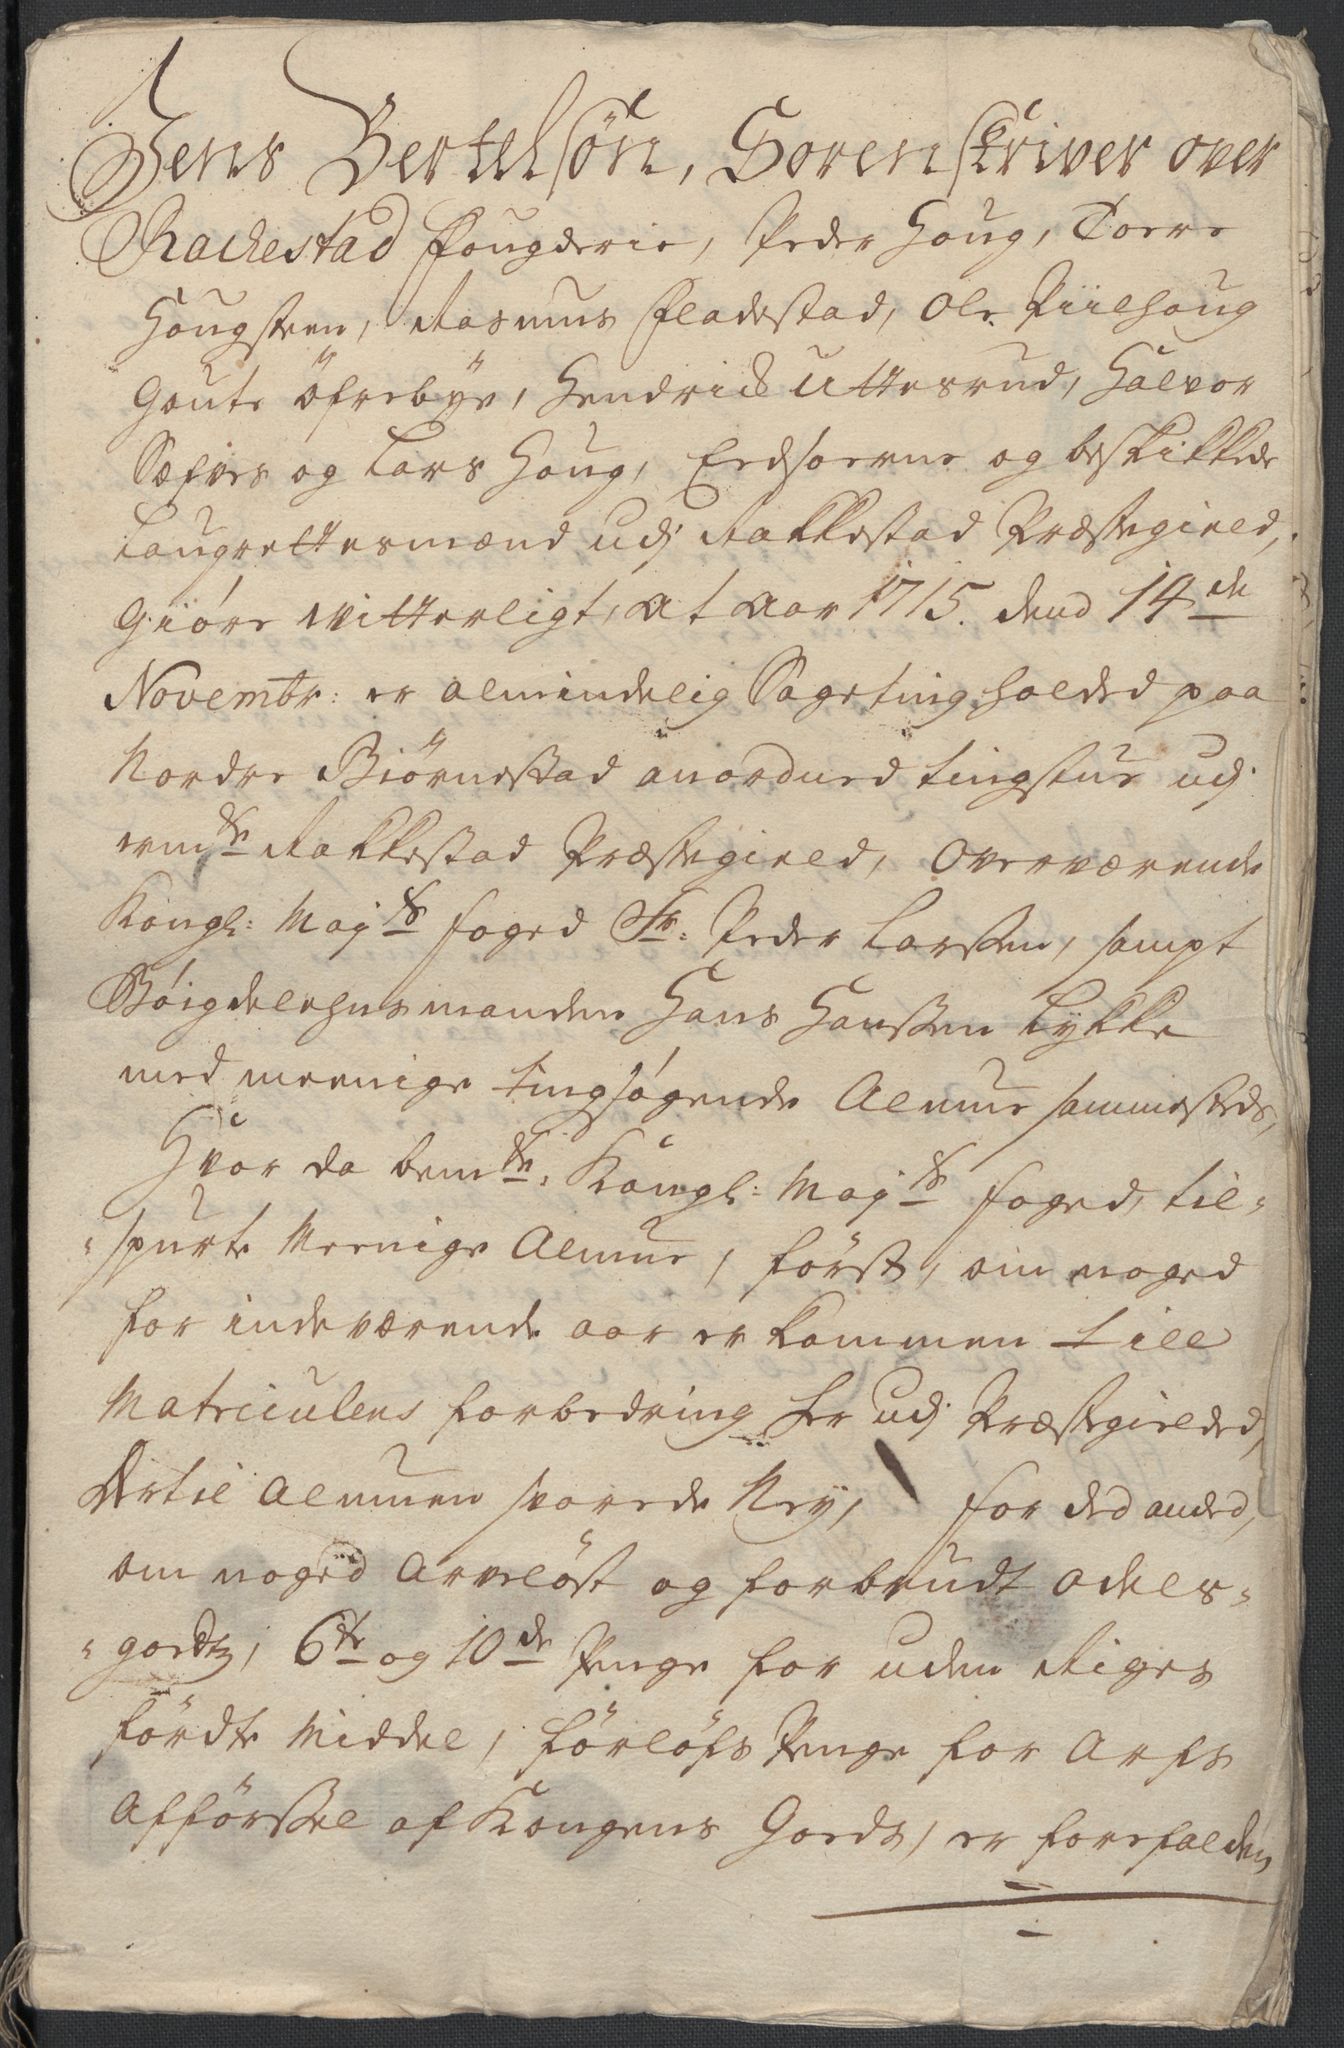 Jens Bertelsön, Sorenskriver over
Rackestad fougderie, Peder Houg, Torre
Hougsteen, Rasmus Fladestad, Ole Piilhoug
Goute Öfrebÿe, Hendrick Uttesrud, Halvor
Sæfves og Lars Houg, Eedsoerne og beskikkede
Laugrettesmænd udj Rakkestad Præstegield,
Giöre vitterligt, at aar 1715. dend 14de
Novembr: er almindelig Sageting holded paa
Nordre Biörnestad anordned tingstue udj
ermte Rakkestad Præstegield, Overværende
Kongl: Mayts foged Sr: Peder Larssen, sampt
Böigdelehnsmanden Hans Hanssen Lykke
med meenige tingsøgende Almue sammesteds,
Hvor da bemte: Kongl: Mayts foged, til-
-spurte Meenige Almue, först, om noged
for indeværende aar er kommen till
Matriculens forbedring her udj Præstegielded,
Dertil Almuen svarede Neÿ, for ded anded,
om noged Arvelöst og forbrudt Odels-
-goedtz, 6te og 10de Penge for uden Riges
fördte Middel, förlöfs Penge for Arfs
Afförssel af Kongens Goeds, er forefalden,